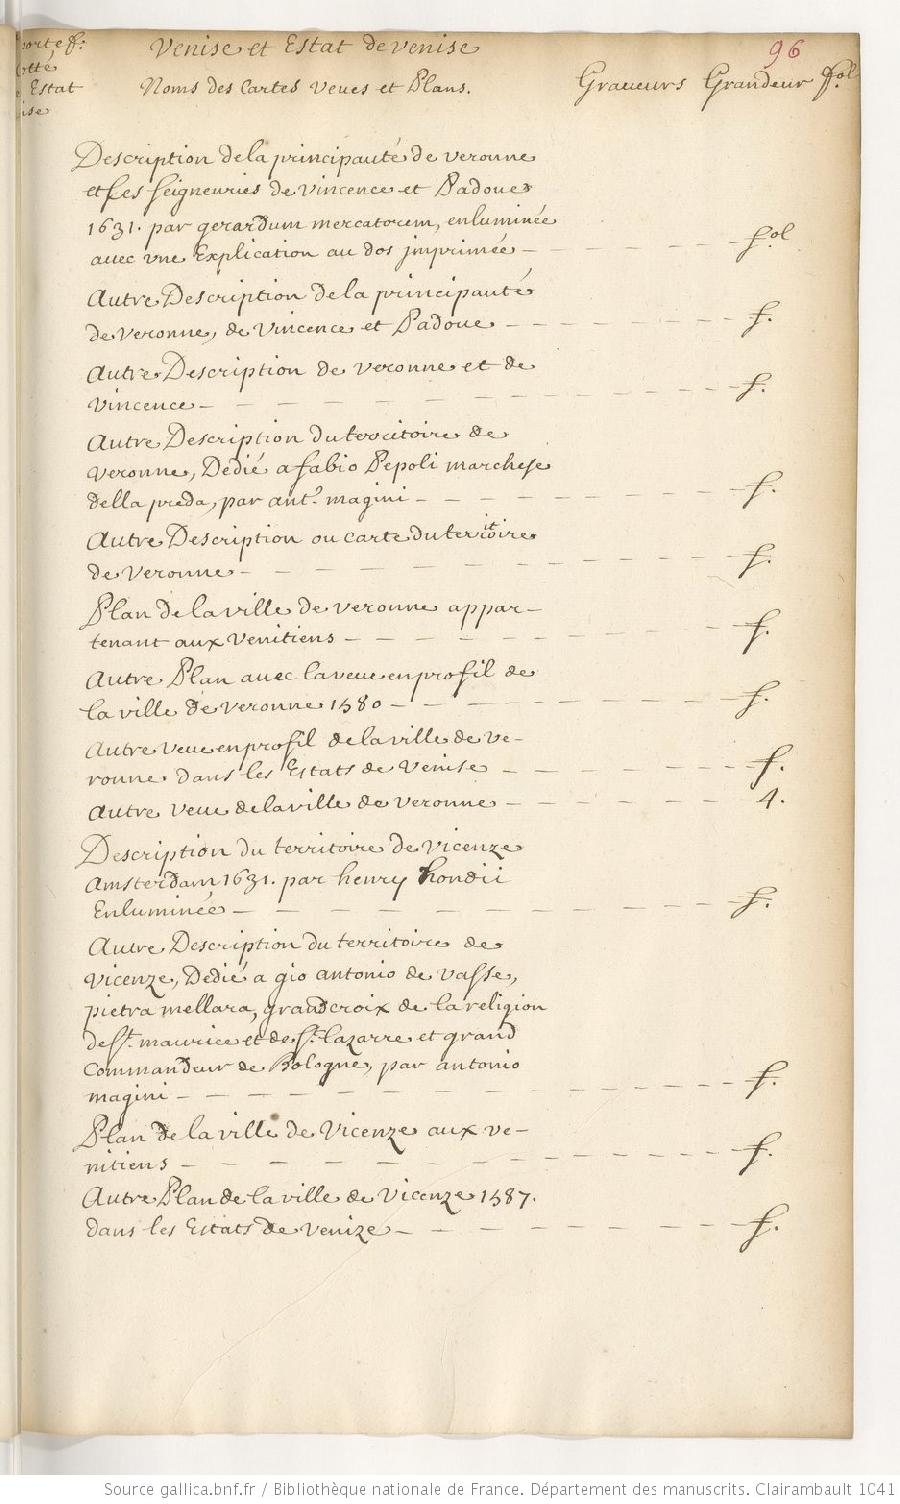 porte f.
Cotté
Estat
ise
Venise et Estat de Venise
96
Noms des Cartes Veues et Plans. Graueurs Grandeur fol
Description de la principauté de veronne
et ses seigneuries de Vincence et Padoue
1631. par gerardum mercatorem, enluminée
auec vne Explication au dos jmprimée — fol
Autre Description de la principauté
de veronne, de Vincence et Padoue — f.
Autre Description de veronne et de
Vincence — f.
Autre Description du territoire de
veronne, Dedié a fabio Pepoli marchese
della preda, par ant.o magini — f.
Autre Description ou carte du territoire
de Veronne — f.
Plan de la ville de veronne appar-
tenant aux Venitiens — f.
Autre Plan auec la veue en profil de
la ville de veronne 1580 — f.
Autre veue en profil de la ville de ve-
ronne dans les Estats de Venise — f.
Autre veue de la ville de veronne — 4.
Description du territoire de Vicenze
Amsterdam 1631. par henry hondii
Enluminée — f.
Autre Description du territoire de
Vicenze, Dedié a gio antonio de vasse,
pietra mellara, grand croix de la religion
de St. maurice et de St. lazarre et grand
Commandeur de Bologne, par antonio
magini — f.
Plan de la ville de Vicenze aux ve-
nitiens — f.
Autre Plan de la ville de Vicenze 1587.
dans les Estats de Venize — f.
Source gallica.bnf.fr / Bibliothèque nationale de France. Département des manuscrits. Clairambault 1041